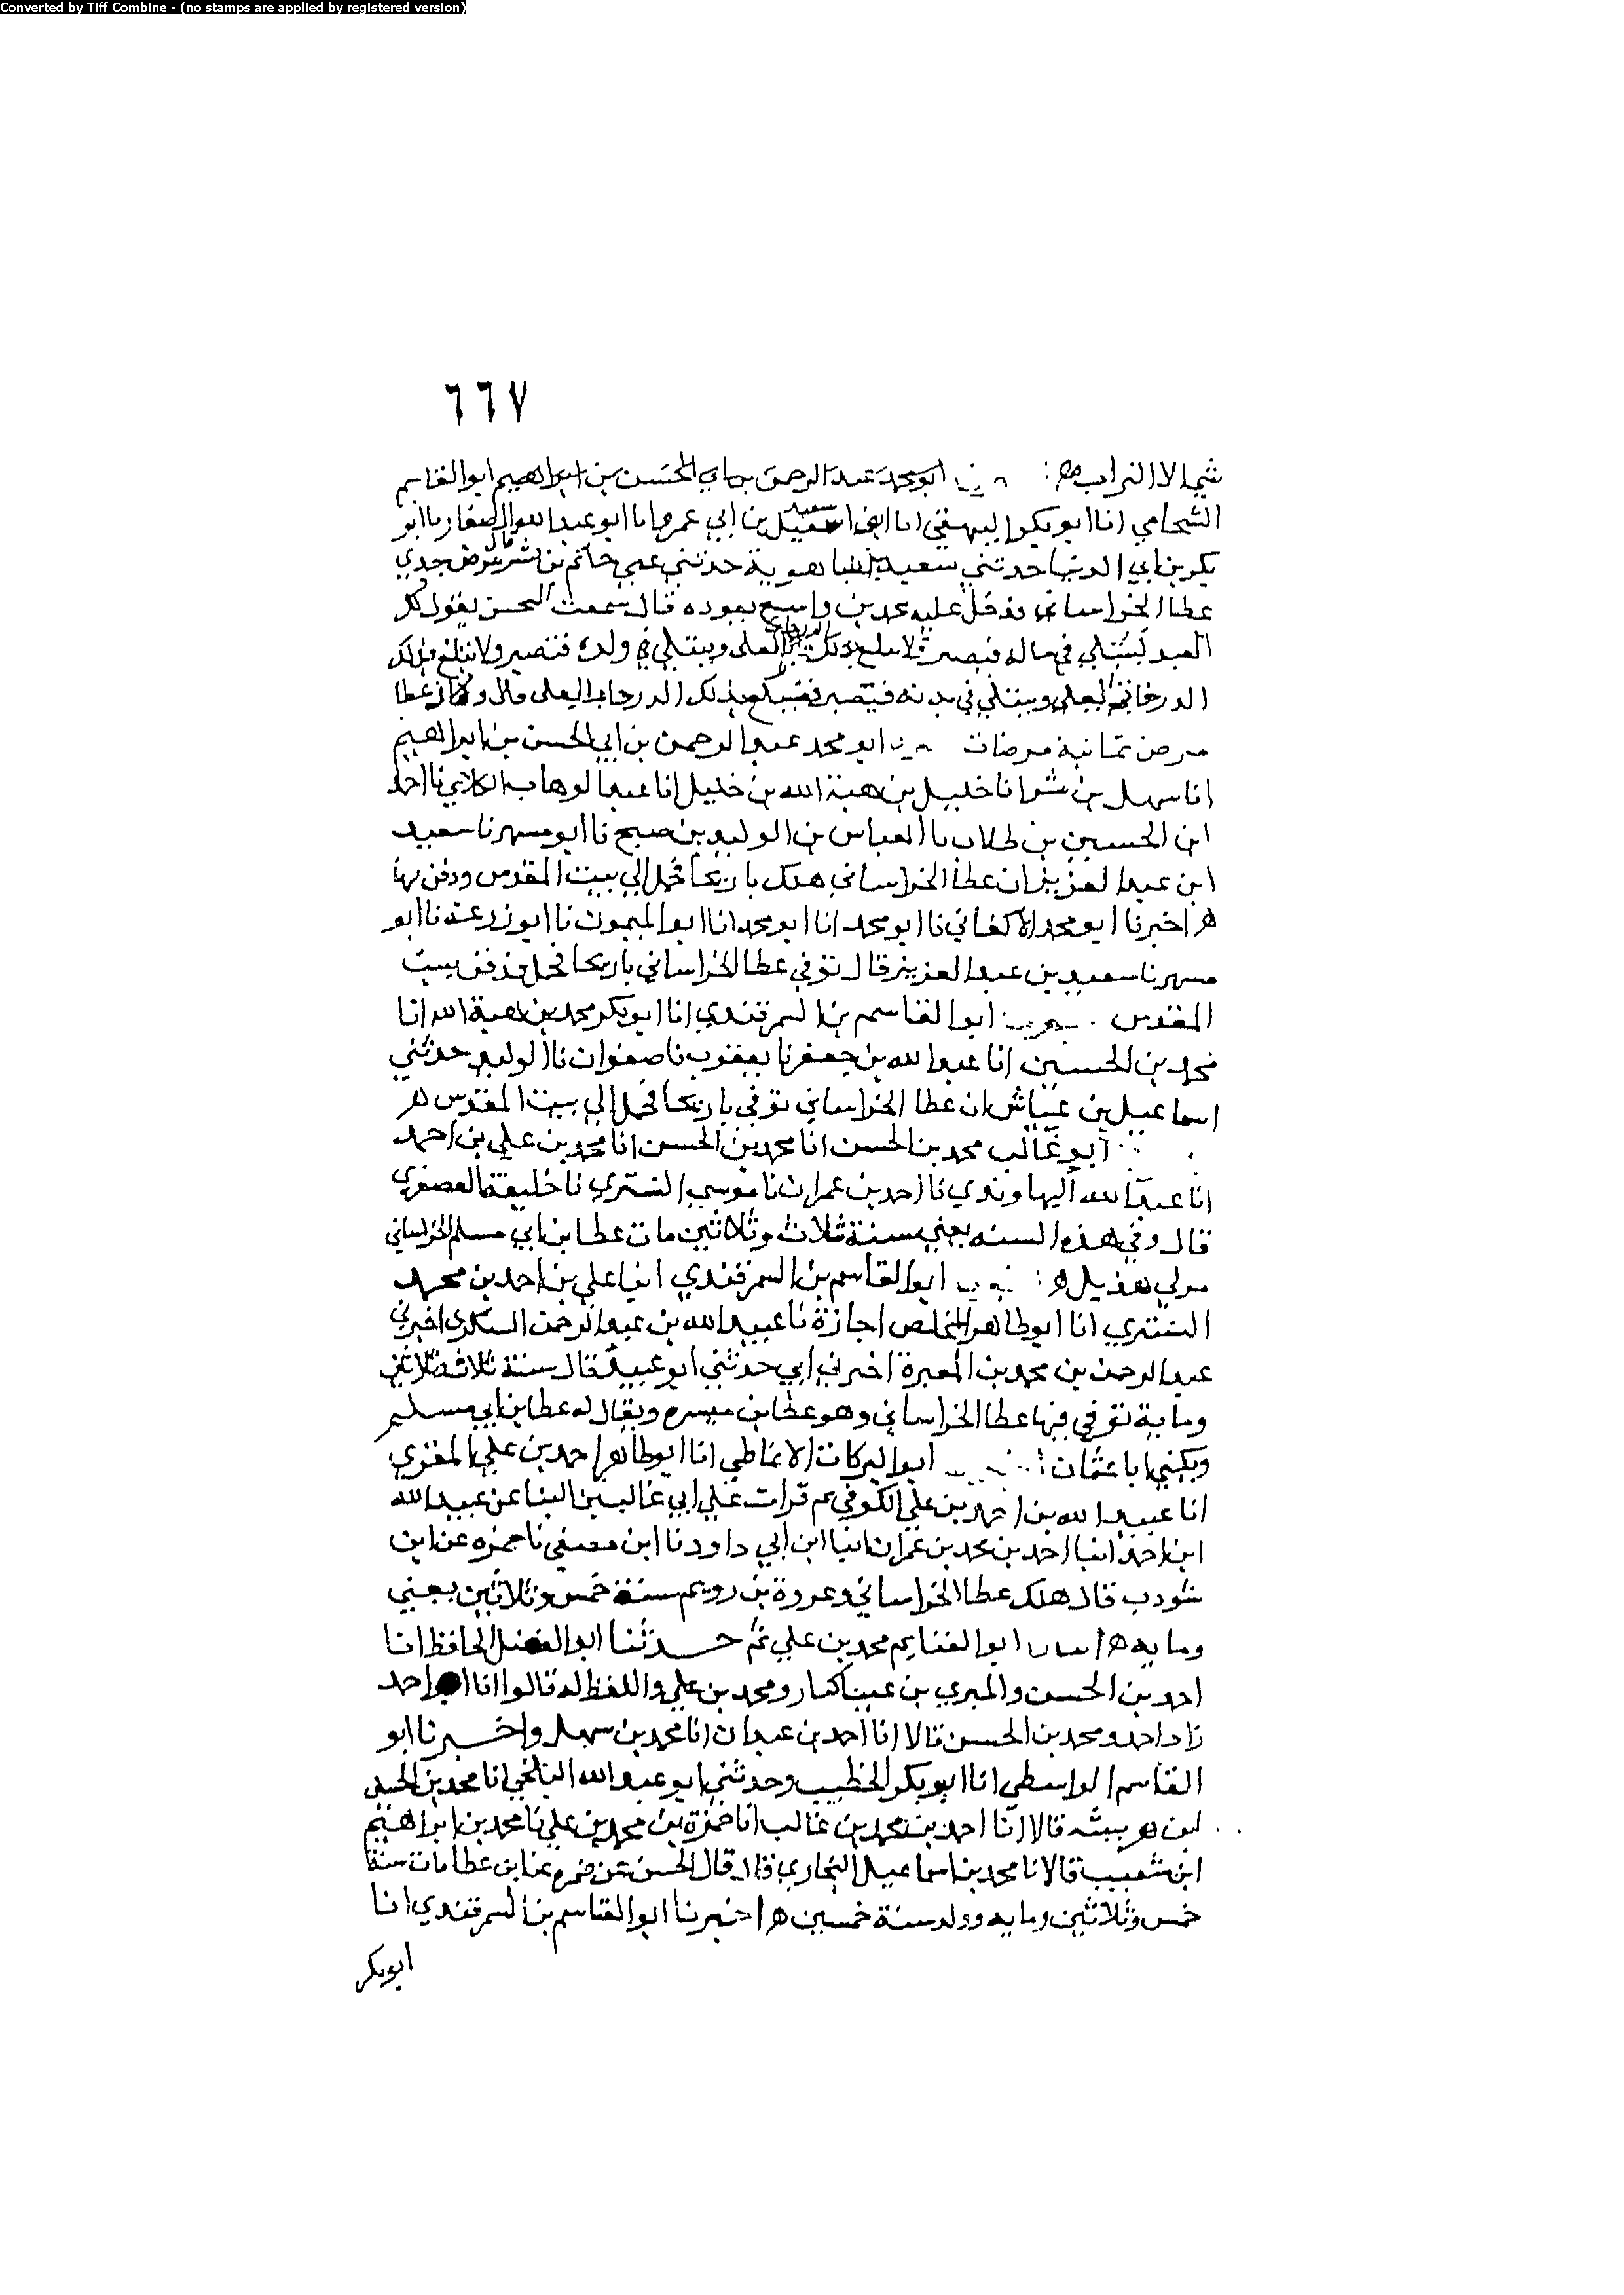 Converted by Tiff Combine - (no stamps are applied by registered version)
٦٦٧
شيا الا التراب هـ ابو محمد عبد الرحمن بن ابي الحسن بن ابراهيم ابو القاسم
الشحامي انا ابو بكر البيهقي انا سعيد بن ابي عمرو انا ابو عبد الله الصفار نا ابو
بكر بن ابي الدنيا حدثني سعيد بن شاهوية حدثني عمي حاتم بن بشر قال مرض جدي
عطا الخراساني فدخل عليه محمد بن واسع يعوده قال سمعت الحسن يقول ان
العبد ليبتلي في ماله فيصبر ولا يبلغ بذلك الدرجات العلى ويبتلي في ولده فيصبر ولا يبلغ بذلك
الدرجات العلى ويبتلي في بدنه فيصبر فيبلغ بذلك الدرجات العلى قال وكان عطا
مرض ثمانية مرضات ابو محمد عبد الرحمن بن ابي الحسن بن ابراهيم
انا سهل بن بشر انا خليل بن هبة الله بن خليل انا عبد الوهاب الكلابي نا احمد
ابن الحسين بن طلاب نا العباس بن الوليد بن صبح نا ابو مسهر نا سعيد
ابن عبد العزيز ان عطا الخراساني هلك باريحا فحمل الى بيت المقدس ودفن بها
هـ اخبرنا ابو محمد الاكفاني نا ابو محمد انا ابو محمد انا ابو الميمون نا ابو زرعة نا ابو
مسهر نا سعيد بن عبد العزيز قال توفي عطا الخراساني باريحا فحمل فدفن ببيت
المقدس ابو القاسم بن السمرقندي انا ابو بكر محمد بن هبة الله انا
محمد بن الحسين انا عبد الله بن جعفر نا يعقوب نا صفوان نا الوليد حدثني
اسماعيل بن عياش ان عطا الخراساني توفي باريحا فحمل الى بيت المقدس هـ
ابو غالب محمد بن الحسن انا محمد بن الحسن انا محمد بن علي بن احمد
انا عبد الله النهاوندي نا احمد بن عمران نا موسى التستري نا خليفة العصفري
قال وفي هذه السنه يعني سنة ثلاث وثلاثين مات عطا بن ابي مسلم الخراساني
مولي هذيل هـ ابو القاسم بن السمرقندي انبا علي بن احمد بن محمد
التستري انا ابو طاهر المخلص اجازة نا عبيد الله بن عبد الرحمن السكري اخبرني
عبد الرحمن بن محمد بن المغيرة اخبرني ابي حدثني ابو عبيد قال سنة ثلاث وثلاثين
وماية توفي فيها عطا الخراساني وهو عطا بن ميسره ويقال له عطا بن ابي مسلم
ويكني ابا عثمان ابو البركات الانماطي انا ابو طاهر احمد بن علي المقري
انا عبيد الله بن احمد بن علي الكوفي ثم قرات علي ابي غالب بن البنا عن عبيد الله
ابن احمد انبا احمد بن محمد بن عمران انبا ابن ابي داود نا ابن مصفي نا ضمره عن ابن
شودب قال هلك عطا الخراساني وعروة بن رويم سنة خمس وثلاثين يعني
ومايه هـ ابو الغنايم محمد بن علي ثم حدثنا ابو الفضل الحافظ انا
احمد بن الحسن والمبري بن عبد الجبار ومحمد بن علي واللفظ له قالوا انا ابو احمد
زاد احمد ومحمد بن الحسن قالا انا احمد بن عبدان انا محمد بن سهل واخبرنا ابو
القاسم الواسطي انا ابو بكر الخطيب وحدثني ابو عبد الله البلخي انا محمد بن الحسن
ابن هريسه قالا انا احمد بن محمد بن غالب انا حمزة بن محمد بن علي نا محمد بن ابراهيم
ابن شعيب قالا نا محمد بن اسماعيل البخاري قال قال الحسن عن ضمره عن ابن عطا مات سنة
خمس وثلاثين ومايه وولد سنة خمسين هـ اخبرنا ابو القاسم بن السمرقندي انا
ابو بكر